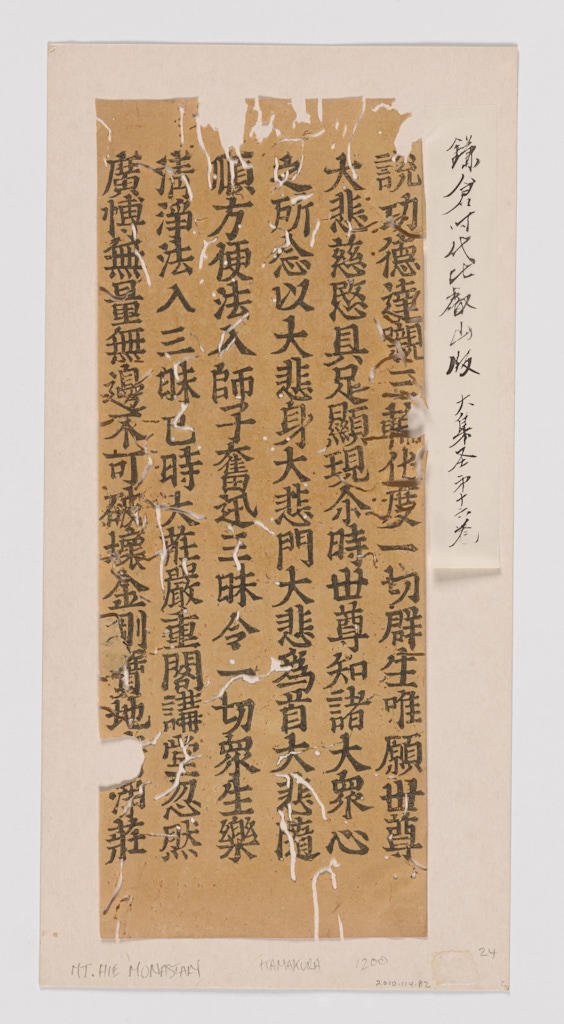 鎌倉时代比叡山版 大集圣㐧十六卷
說功德達嚫三輪化度一切群生唯願丗尊
大悲慈愍具足顯現尒時丗尊知諸大衆心
之所念以大悲身大悲門大悲爲首大悲隨
順方便法入師子奮迅三昧令一切衆生樂
清淨法入三昧已時大莊嚴重閣講堂忽然
廣愽無量無邊不可破壞金剛寶地淨莊
MT. HIE MONASTARY KAMAKURA 1200
24
2010.114.82